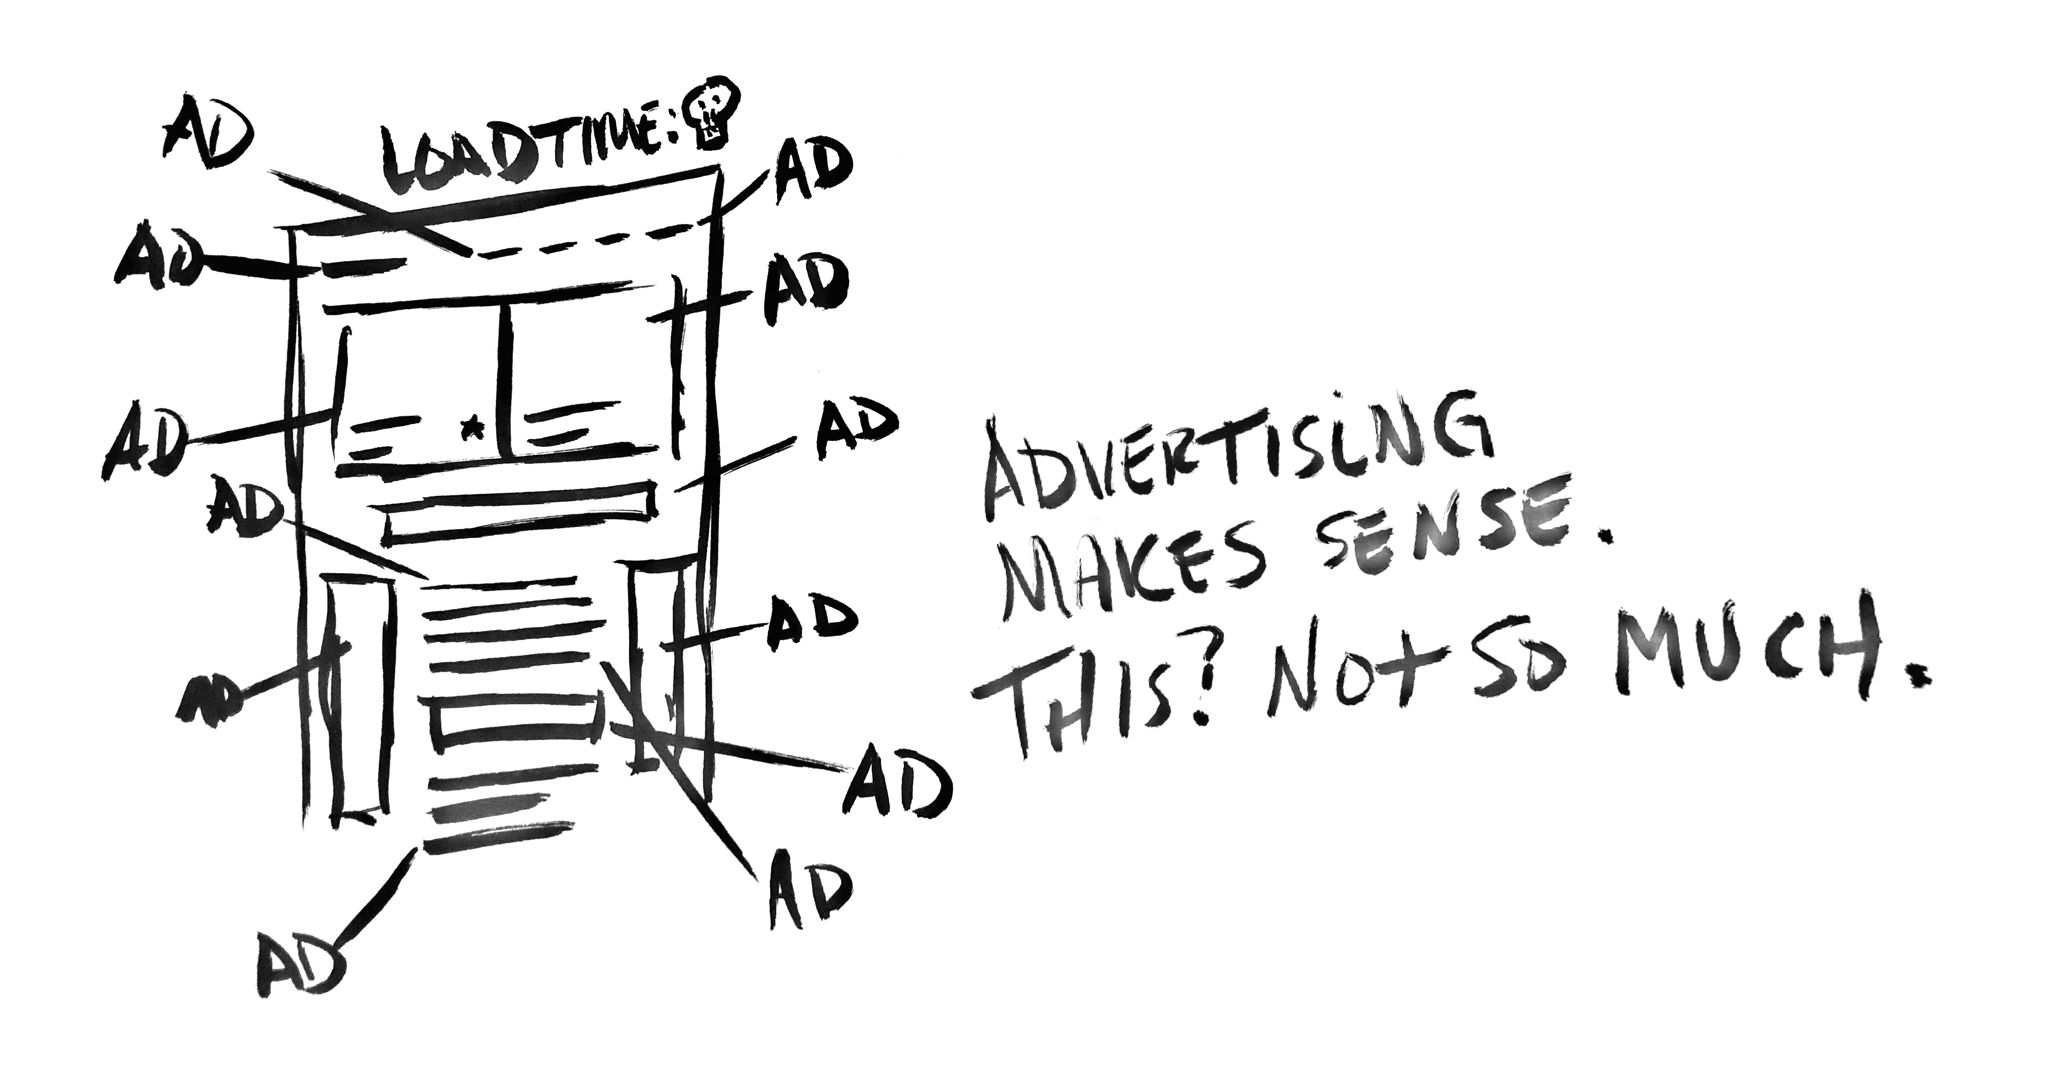 AD
LOADTIME:
AD
AD
AD
AD
AD
AD
AD
AD
AD
AD
AD
ADVERTISING
MAKES SENSE.
THIS? NOT SO MUCH.
AD